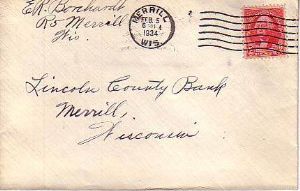 E.A. Borchardt
R5 Merrill
Wis.
MERRILL
FEB 5
1934
WIS.
Lincoln County Bank
Merrill,
Wisconsin